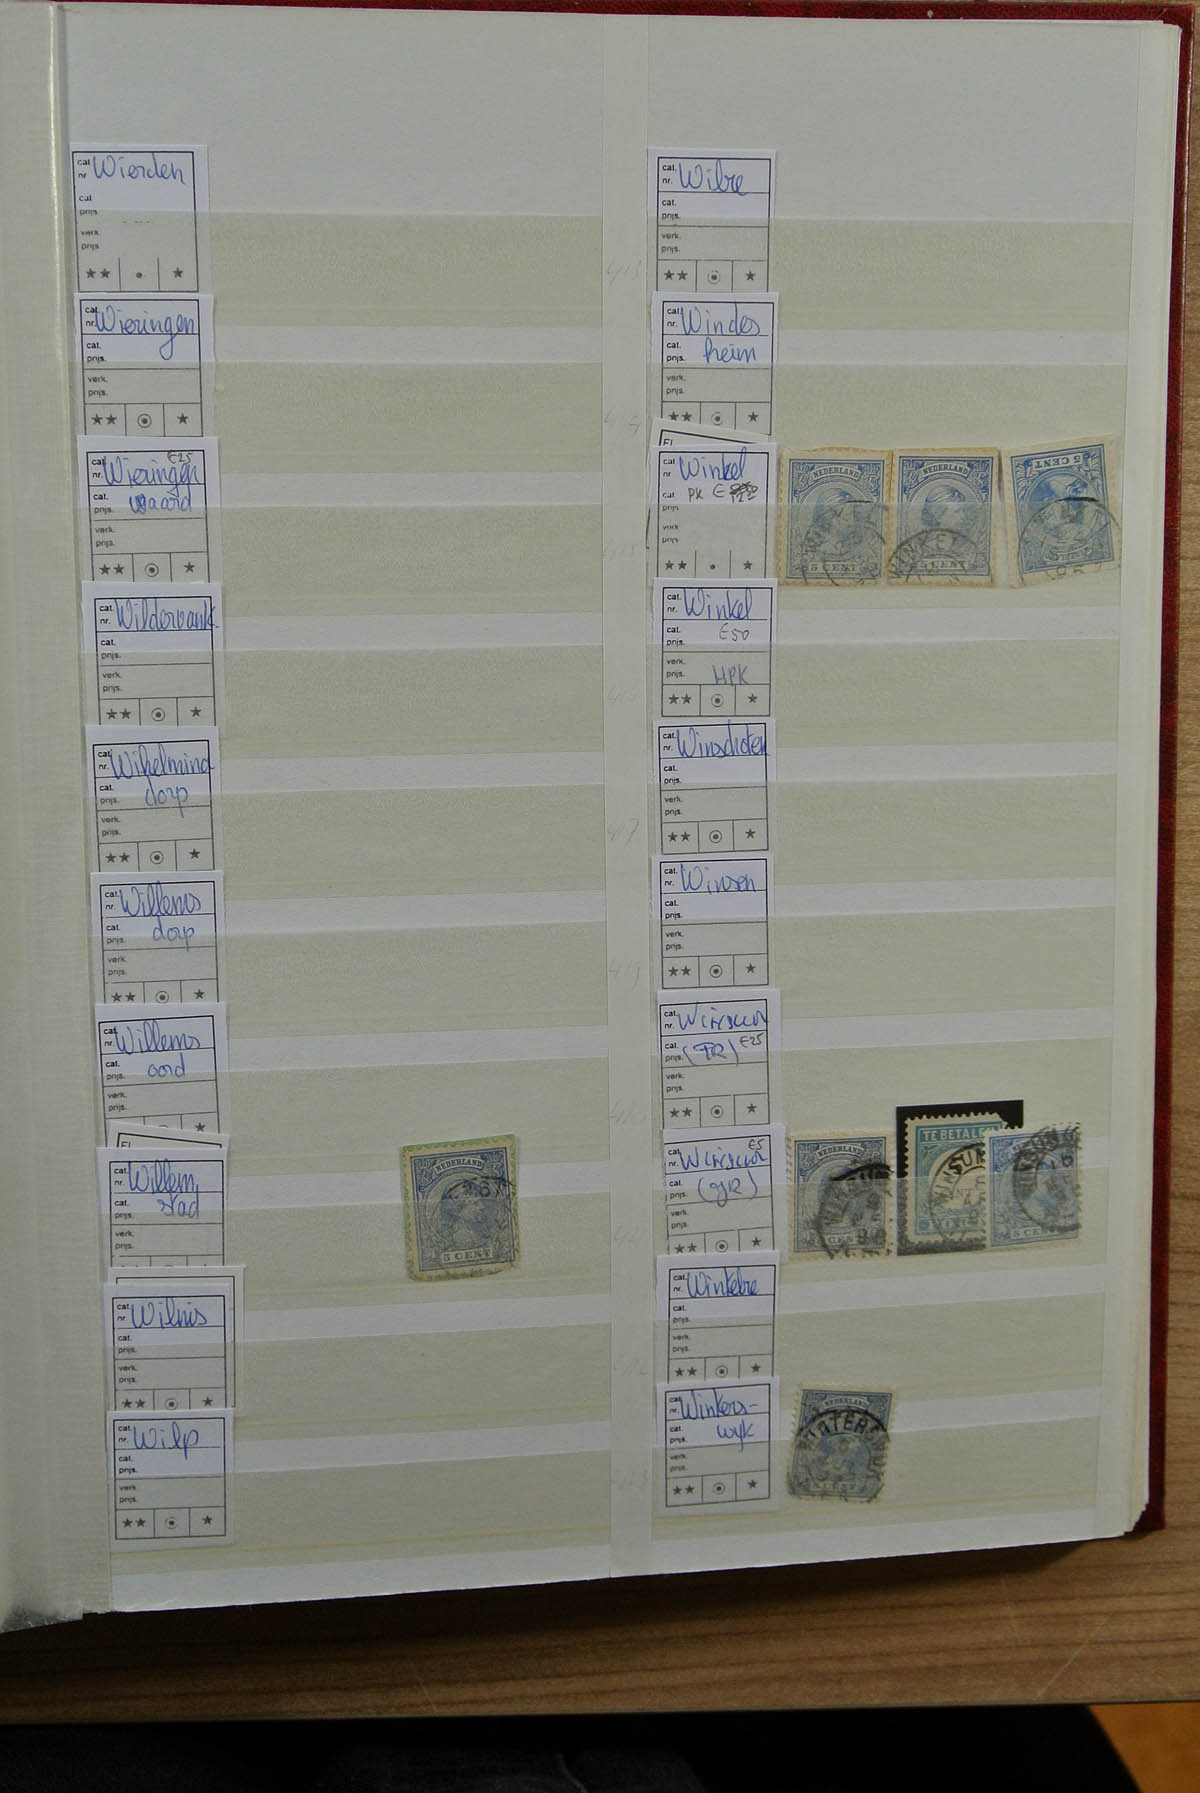 cat.
nr. Wierden
cat.
prijs.
verk.
prijs.
cat.
nr. Wieringen
cat.
prijs.
verk.
prijs.
€25
cat.
nr. Wieringen
cat.
prijs. waard
verk.
prijs.
cat.
nr. Wildervank
cat.
prijs.
verk.
prijs.
cat.
nr. Wilhelmina
cat.
prijs. dorp
verk.
prijs.
cat.
nr. Willems
cat.
prijs. dorp
verk.
prijs.
cat.
nr. Willems
cat.
prijs. oord
cat.
nr. Willem
cat.
prijs. stad
verk.
prijs.
NEDERLAND
5 CENT
cat.
nr. Wilnis
cat.
prijs.
verk.
prijs.
cat.
nr. Wilp
cat.
prijs.
verk.
prijs.
cat.
nr. Wilre
cat.
prijs.
verk.
prijs.
cat.
nr. Windes
cat.
prijs. heim
verk.
prijs.
cat.
nr. Winkel
cat. PK €
prijs
verk
prijs
NEDERLAND
5 CENT
NEDERLAND
WINKEL
5 CENT
5 CENT
cat.
nr. Winkel
cat. €50
prijs.
verk.
prijs. HPK
cat.
nr. Winschoten
cat.
prijs.
verk.
prijs.
cat.
nr. Winsen
cat.
prijs.
verk.
prijs.
cat.
nr. Winsum
cat. €25
prijs. (FR)
verk.
prijs.
€5
cat.
nr. Winsum
cat.
prijs. (GR)
verk.
prijs.
NEDERLAND
WINSUM
CENT
TE BETALEN
WINSUM
WINSUM
5 CENT
cat.
nr.
cat.
prijs.
verk.
prijs.
cat.
nr.
cat. wyk
prijs.
verk.
prijs.
NEDERLAND